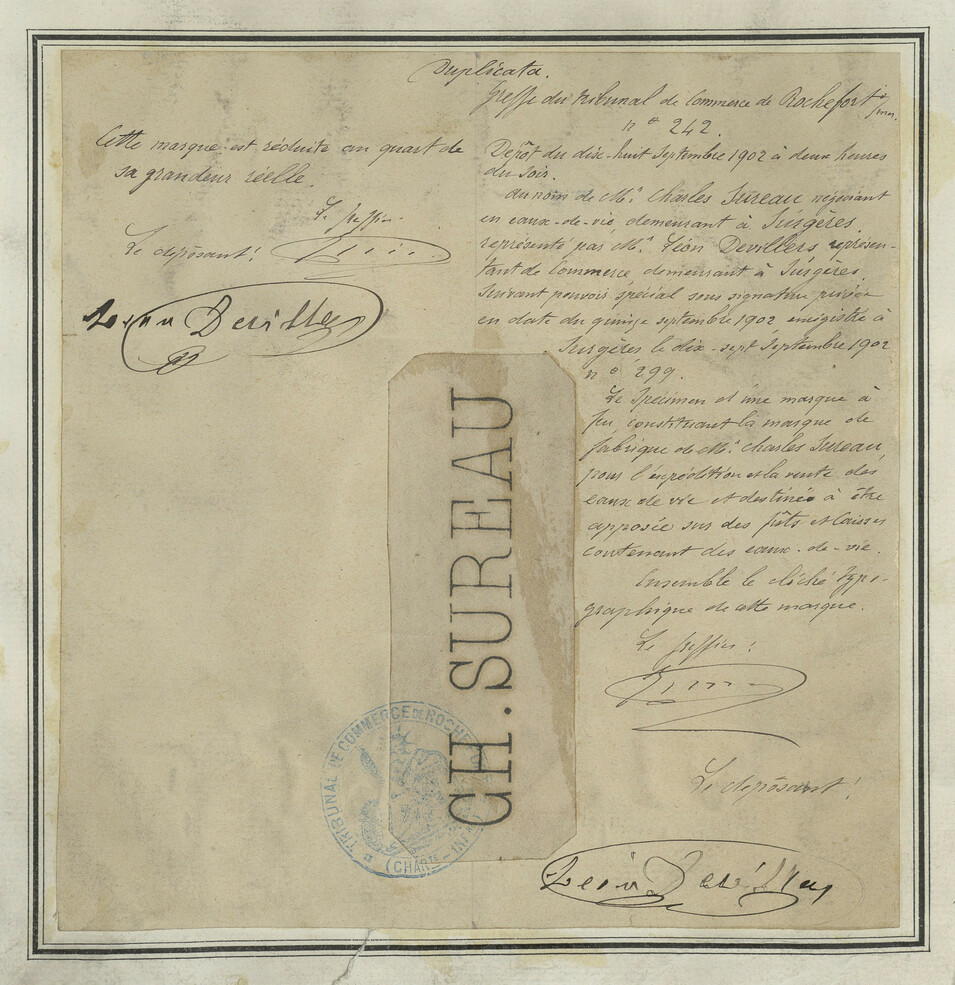 Duplicata.
Cette marque est réduite au quart de
sa grandeur réelle.
Le greffier.
Le déposant:
Léon Devillers
Greffe du tribunal de Commerce de Rochefort s/mer.
n° 242.
Dépôt du dix-huit Septembre 1902 à deux heures
du soir.
au nom de Mr. Charles Sureau négociant
en eaux-de-vie, demeurant à Surgères,
représenté par Mr. Léon Devillers représen-
tant de Commerce, demeurant à Surgères,
suivant pouvoir spécial sous signature privée
en date du quinze septembre 1902 enregistré à
Surgères le dix-sept Septembre 1902
n° 299.
Le Specimen est une marque à
feu, constituant la marque de
fabrique de Mr. Charles Sureau,
pour l'expédition et la vente des
eaux de vie et destinée à être
apposée sur des fûts et Caisses
contenant des eaux-de-vie.
Ensemble le cliché typo-
graphique de cette marque.
Le greffier:
Le déposant:
Léon Devillers
CH. SUREAU
TRIBUNAL DE COMMERCE DE ROCHE
(CHARTE - INF